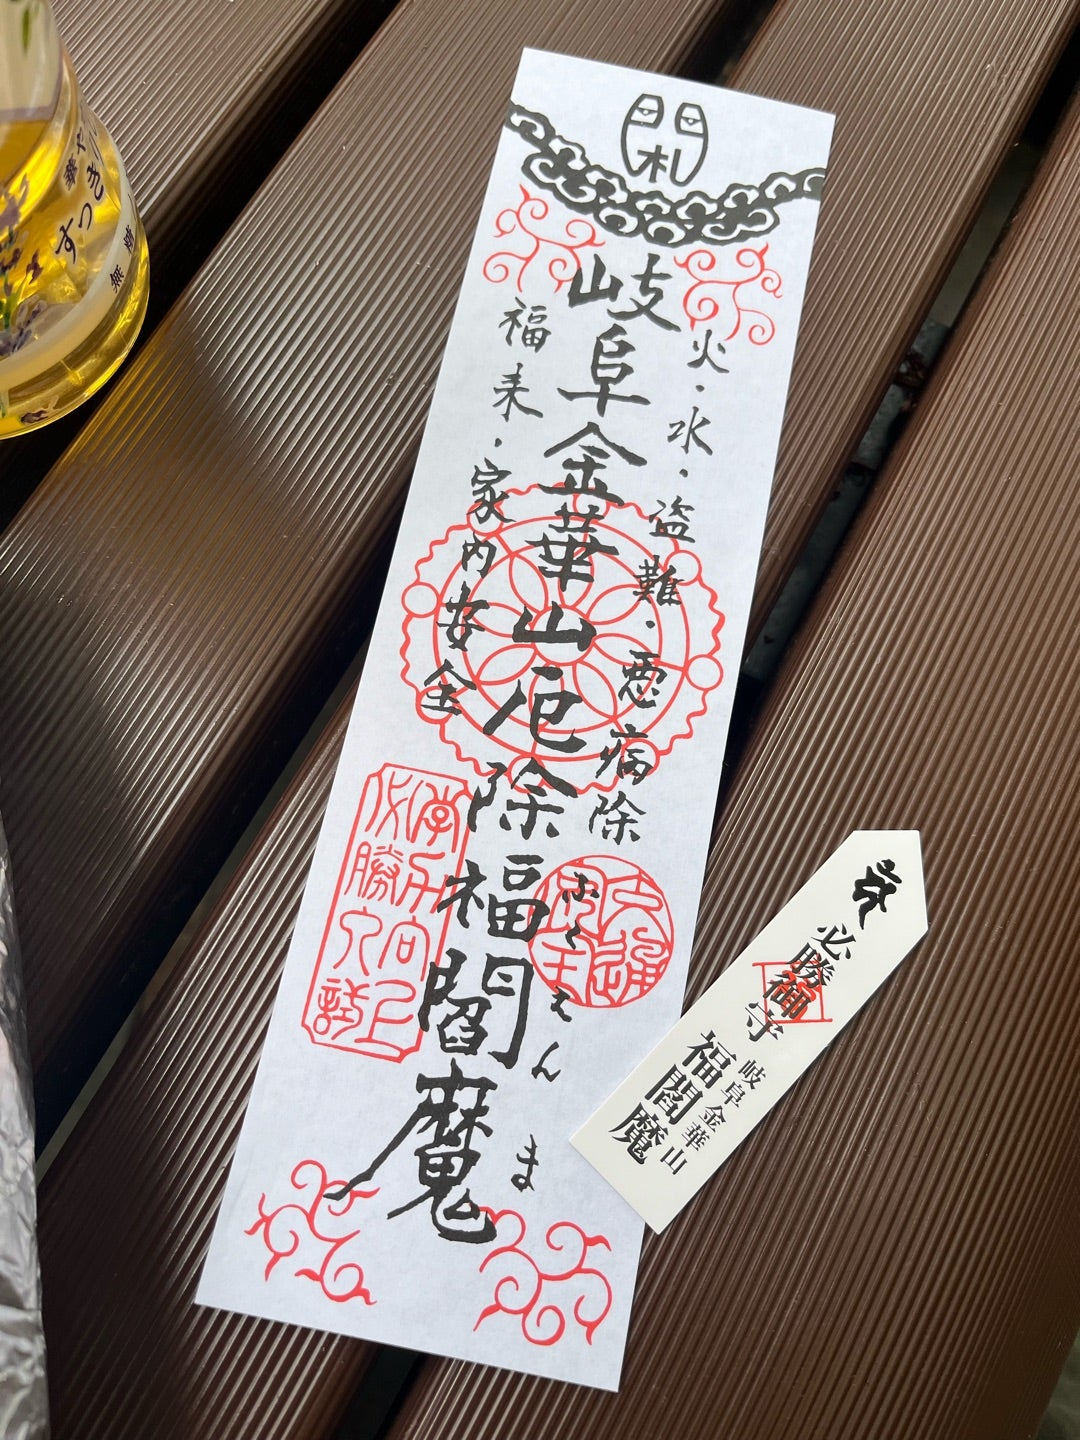 閻札
岐阜金華山厄除福閻魔
火・水・盗難・悪病除
福来・家内安全
ふくえんま
必勝御守
岐阜金華山
福閻魔
華や
すっき
無